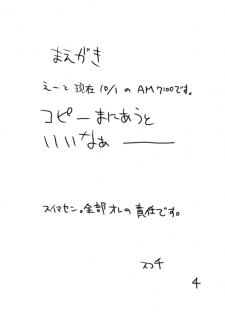 まえがき
えーと現在 10/1 の AM7:00です。
コピーまにあうと
いいなぁ――
スイマセン。全部オレの責任です。
4